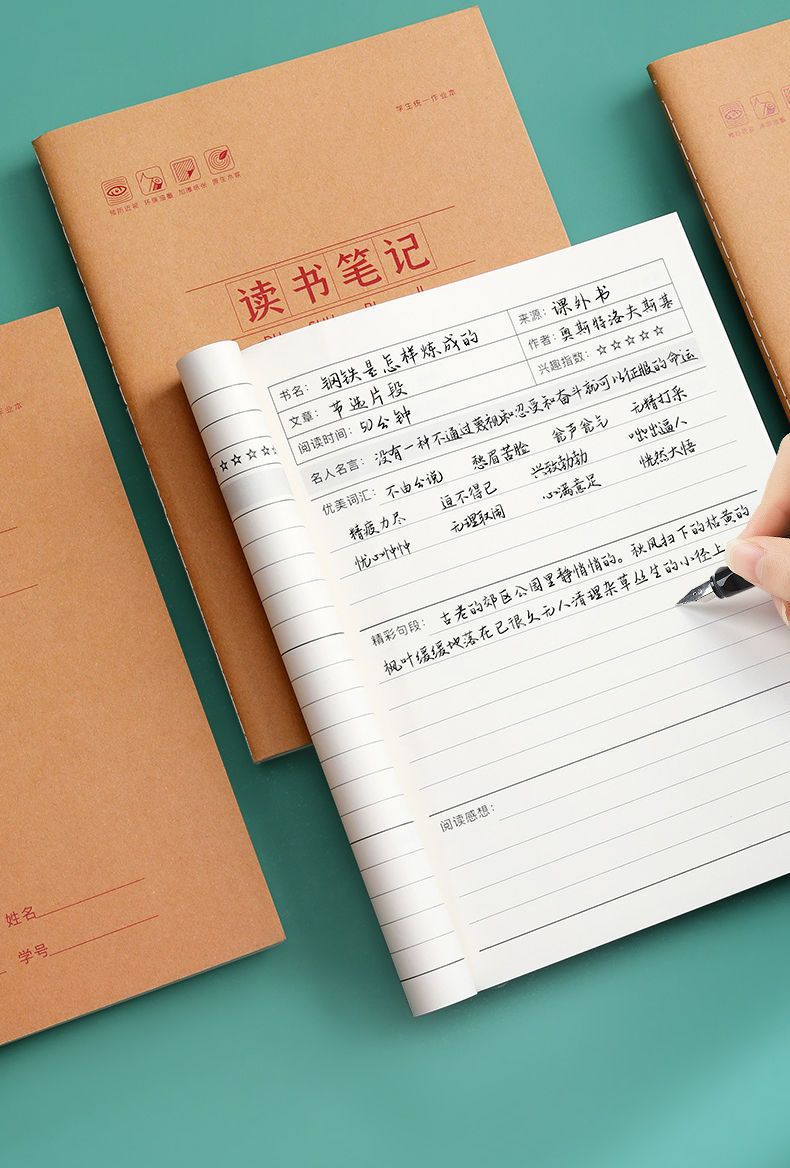 学生统一作业本
预防近视 环保油墨 加厚纸张 原生木浆
读书笔记
作业本
姓名
学号
书名: 钢铁是怎样炼成的
来源: 课外书
文章: 节选片段
作者: 奥斯特洛夫斯基
阅读时间: 50分钟
兴趣指数: ☆☆☆☆☆
名人名言: 没有一种不通过蔑视和忍受和奋斗就可以征服的命运
优美词汇: 不由分说 愁眉苦脸 瓮声瓮气 无精打采
精疲力尽 迫不得已 兴致勃勃 咄咄逼人
忧心忡忡 无理取闹 心满意足 恍然大悟
精彩句段: 古老的郊区公园里静悄悄的。秋风扫下的枯黄的
枫叶缓缓地落在已很久无人清理杂草丛生的小径上
阅读感想:
☆☆☆☆